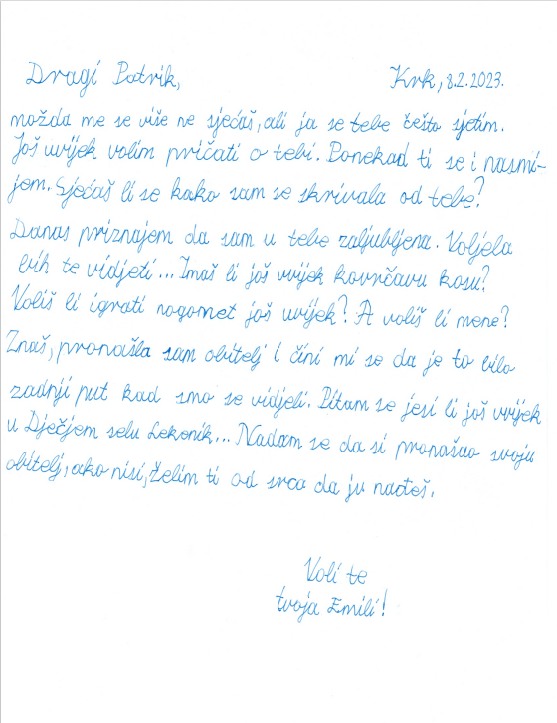 Dragi Patrik,
Krk, 8.2.2023.
možda me se više ne sjećaš, ali ja se tebe često sjetim.
Još uvijek volim pričati o tebi. Ponekad ti se i nasmi-
jem. Sjećaš li se kako sam se skrivala od tebe?
Danas priznajem da sam u tebe zaljubljena. Voljela
bih te vidjeti... Imaš li još uvijek kovrčavu kosu?
Voliš li igrati nogomet još uvijek? A voliš li mene?
Znaš, pronašla sam obitelj i čini mi se da je to bilo
zadnji put kad smo se vidjeli. Pitam se jesi li još uvijek
u Dječjem selu Lekenik... Nadam se da si pronašao svoju
obitelj, ako nisi, želim ti od srca da ju nađeš.
Voli te
tvoja Emili!